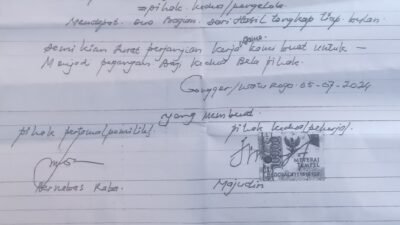 =pihak kedua/pengelola
Mendapat dua Bagian. Dari Hasil tangkap tiap bulan
Demikian Surat perjanjian kerja Sama kami buat untuk -
Menjadi pegangan Bagi kedua Bela pihak.
05-07-2024
yang membuat.
pihak pertama/pemilik/. pihak kedua/pekerja/.
METERAI
TEMPEL
Barnabas Raba. Majudin